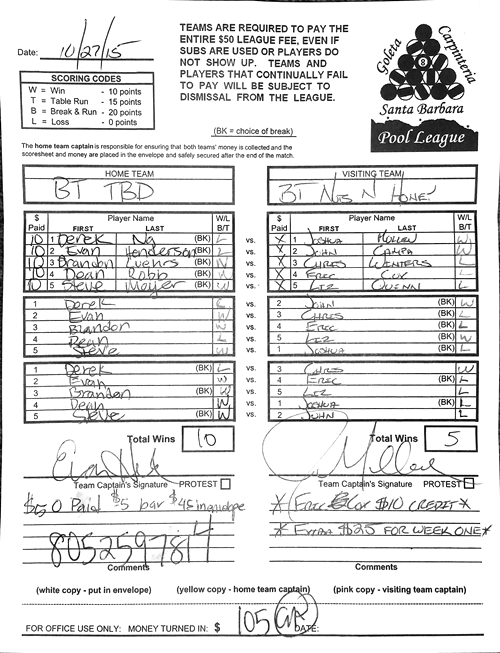 Date: 10/27/15
TEAMS ARE REQUIRED TO PAY THE
ENTIRE $50 LEAGUE FEE, EVEN IF
SUBS ARE USED OR PLAYERS DO
NOT SHOW UP. TEAMS AND
PLAYERS THAT CONTINUALLY FAIL
TO PAY WILL BE SUBJECT TO
DISMISSAL FROM THE LEAGUE.
(BK = choice of break)
SCORING CODES
W = Win - 10 points
T = Table Run - 15 points
B = Break & Run - 20 points
L = Loss - 0 points
Goleta
Carpinteria
8
Santa Barbara
Pool League
The home team captain is responsible for ensuring that both teams' money is collected and the
scoresheet and money are placed in the envelope and safely secured after the end of the match.
HOME TEAM
BT TBD
VISITING TEAM
BT Nis N Hone
$ Paid Player Name FIRST LAST W/L B/T
$ Paid Player Name FIRST LAST W/L B/T
10 1 Derek Ng (BK) L vs. X 1 Joshua W
10 2 Evan Henderson (BK) L vs. X 2 John Campa W
10 3 Brandon Luehrs (BK) W vs. X 3 Chris Winters L
10 4 Dean Robb (BK) W vs. X 4 Eric Cox L
10 5 Steve Moyer (BK) W vs. X 5 Liz Quenn L
1 Derek vs. 2 John (BK) W
2 Evan W vs. 3 Chris (BK) L
3 Brandon W vs. 4 Eric (BK) L
4 Dean L vs. 5 Liz (BK) W
5 Steve W vs. 1 Joshua (BK) L
1 Derek (BK) L vs. 3 Chris W
2 Evan W vs. 4 Eric (BK) L
3 Brandon (BK) W vs. 5 Liz L
4 Dean W vs. 1 Joshua (BK) L
5 Steve (BK) W vs. 2 John L
Total Wins 10
Total Wins 5
Team Captain's Signature PROTEST
Team Captain's Signature PROTEST
$50 Paid $5 bar $45 in
* Eric Cox $10 CREDIT *
8052597814
* EXTRA $25 FOR WEEK ONE *
Comments
Comments
(white copy - put in envelope) (yellow copy - home team captain) (pink copy - visiting team captain)
FOR OFFICE USE ONLY: MONEY TURNED IN: $ 105 DATE: